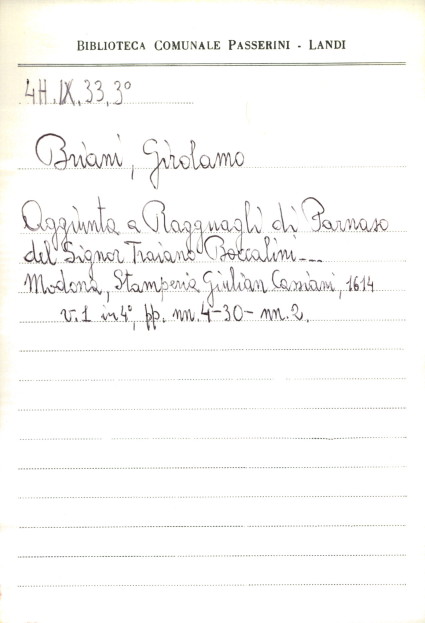 BIBLIOTECA COMUNALE PASSERINI - LANDI
4H.IX.33,3°
Briani, Girolamo
Aggiunta a Ragguagli di Parnaso
del Signor Traiano Boccalini...
Modona, Stamperia Giulian Cassiani, 1614
v.1 in 4°, pp. nn. 4-30- nn. 2.